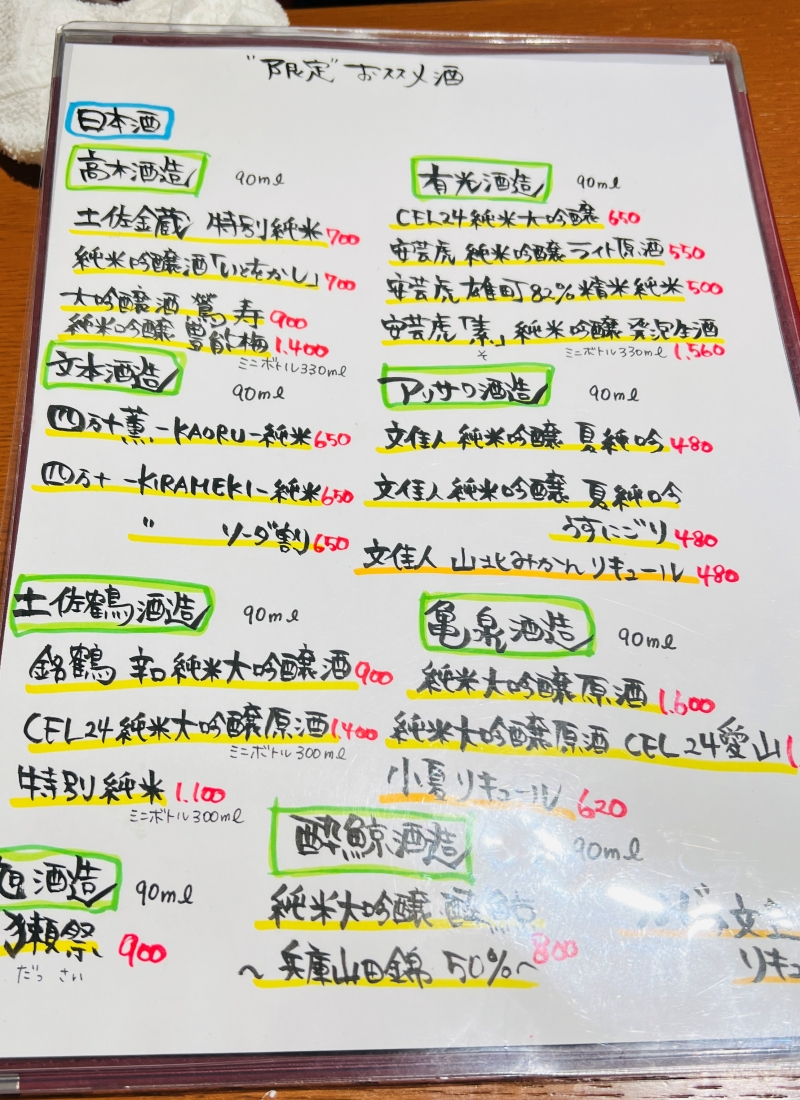 "限定"おススメ酒
日本酒
高木酒造 90ml
土佐金蔵 特別純米 700
純米吟醸酒「いとをかし」 700
大吟醸酒 鶯寿 900
純米吟醸 豊能梅 1.400
ミニボトル330ml
文本酒造 90ml
四万十薫-KAORU-純米 650
四万十-KIRAMEKI-純米 650
〃 ソーダ割 650
土佐鶴酒造 90ml
銘鶴 辛口純米大吟醸酒 900
CEL24純米大吟醸原酒 1,400
ミニボトル300ml
特別純米 1.100
ミニボトル300ml
旭酒造 90ml
獺祭 900
だっさい
有光酒造 90ml
CEL24純米大吟醸 650
安芸虎 純米吟醸 ライト原酒 550
安芸虎 雄町82%精米純米 500
安芸虎「素」純米吟醸 発泡生酒
そ ミニボトル330ml 1,560
アリサワ酒造 90ml
文佳人 純米吟醸 夏純吟 480
文佳人 純米吟醸 夏純吟
うすにごり 480
文佳人 山北みかんリキュール 480
亀泉酒造 90ml
純米大吟醸原酒 1,600
純米大吟醸原酒 CEL24愛山
小夏リキュール 620
酔鯨酒造 90ml
純米大吟醸 酔鯨 800
～兵庫山田錦 50%～
リキュ